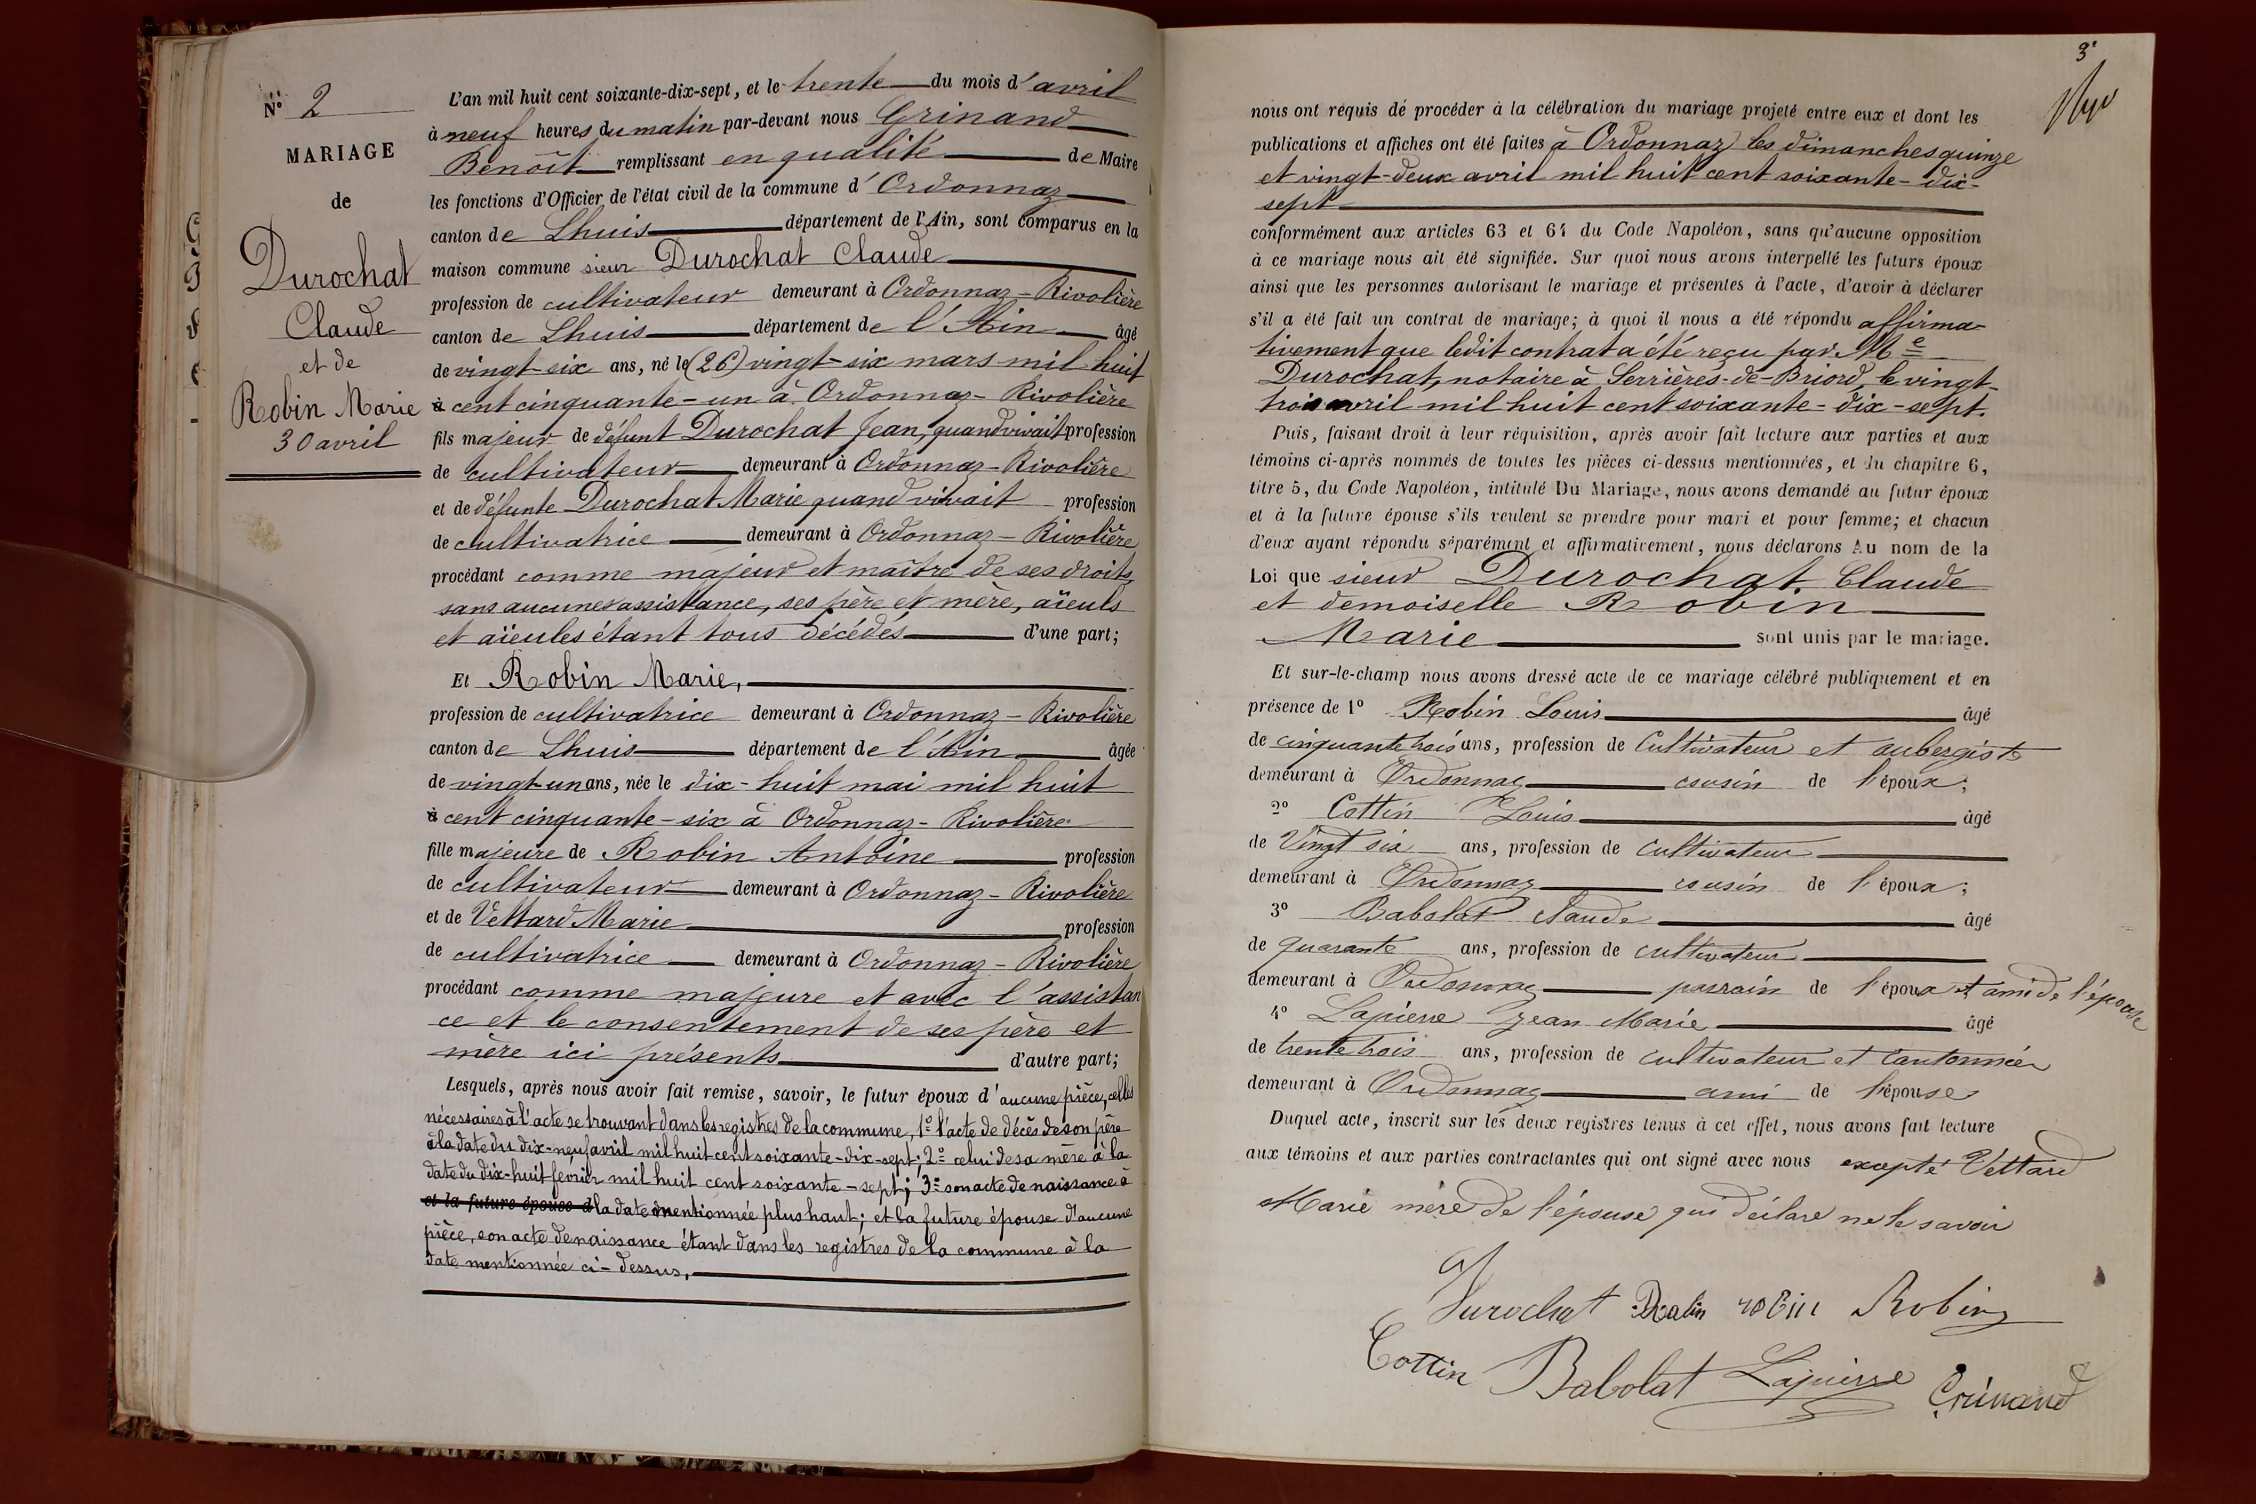 N° 2
MARIAGE
de
Durochat
Claude
et de
Robin Marie
30 avril
L'an mil huit cent soixante-dix-sept, et le trente du mois d'avril
à neuf heures du matin par-devant nous Grinand
Benoît remplissant en qualité de Maire
les fonctions d'Officier de l'état civil de la commune d'Ordonnaz
canton de Lhuis département de l'Ain, sont comparus en la
maison commune sieur Durochat Claude
profession de cultivateur demeurant à Ordonnaz - Rivolière
canton de Lhuis département de l'Ain âgé
de vingt-six ans, né le (26) vingt-six mars mil huit
à cent cinquante-un à Ordonnaz - Rivolière
fils majeur de défunt Durochat Jean, quand vivait profession
de cultivateur demeurant à Ordonnaz - Rivolière
et de défunte Durochat Marie quand vivait profession
de cultivatrice demeurant à Ordonnaz - Rivolière
procédant comme majeur et maître de ses droits,
sans aucune assistance, ses père et mère, aïeuls
et aïeules étant tous décédés d'une part;
Et Robin Marie,
profession de cultivatrice demeurant à Ordonnaz - Rivolière
canton de Lhuis département de l'Ain âgée
de vingt-un ans, née le dix-huit mai mil huit
à cent cinquante-six à Ordonnaz - Rivolière
fille majeure de Robin Antoine profession
de cultivateur demeurant à Ordonnaz - Rivolière
et de Vettard Marie profession
de cultivatrice demeurant à Ordonnaz - Rivolière
procédant comme majeure et avec l'assistan
ce et le consentement de ses père et
mère ici présents d'autre part;
Lesquels, après nous avoir fait remise, savoir, le futur époux d'aucune pièce, celles
nécessaires à l'acte se trouvant dans les registres de la commune, 1° l'acte de décès de son père
à la date du dix-neuf avril mil huit cent soixante-dix-sept; 2° celui de sa mère à la
date du dix-huit février mil huit cent soixante-sept; 3° son acte de naissance à
et la future épouse d la date mentionnée plus haut; et la future épouse d'aucune
pièce, son acte de naissance étant dans les registres de la commune à la
date mentionnée ci-dessus,
3
nous ont requis de procéder à la célébration du mariage projeté entre eux et dont les
publications et affiches ont été faites à Ordonnaz les dimanches quinze
et vingt-deux avril mil huit cent soixante-dix-
sept
conformément aux articles 63 et 64 du Code Napoléon, sans qu'aucune opposition
à ce mariage nous ait été signifiée. Sur quoi nous avons interpellé les futurs époux
ainsi que les personnes autorisant le mariage et présentes à l'acte, d'avoir à déclarer
s'il a été fait un contrat de mariage; à quoi il nous a été répondu affirma-
tivement que ledit contrat a été reçu par Me
Durochat, notaire à Serrières-de-Briord, le vingt-
trois avril mil huit cent soixante-dix-sept.
Puis, faisant droit à leur réquisition, après avoir fait lecture aux parties et aux
témoins ci-après nommés de toutes les pièces ci-dessus mentionnées, et du chapitre 6,
titre 5, du Code Napoléon, intitulé Du Mariage, nous avons demandé au futur époux
et à la future épouse s'ils veulent se prendre pour mari et pour femme; et chacun
d'eux ayant répondu séparément et affirmativement, nous déclarons Au nom de la
Loi que sieur Durochat Claude
et demoiselle Robin
Marie sont unis par le mariage.
Et sur-le-champ nous avons dressé acte de ce mariage célébré publiquement et en
présence de 1° Robin Louis âgé
de cinquante trois ans, profession de Cultivateur et aubergiste
demeurant à Ordonnaz cousin de l'époux;
2° Cottin Louis âgé
de Vingt six ans, profession de cultivateur
demeurant à Ordonnaz cousin de l'époux;
3° Babolat Claude âgé
de quarante ans, profession de cultivateur
demeurant à Ordonnaz parrain de l'époux et ami de l'épouse
4° Lapierre Jean Marie âgé
de trente trois ans, profession de cultivateur et Cantonnier
demeurant à Ordonnaz ami de l'épouse
Duquel acte, inscrit sur les deux registres tenus à cet effet, nous avons fait lecture
aux témoins et aux parties contractantes qui ont signé avec nous excepté Vettard
Marie mère de l'épouse qui déclare ne le savoir
Durochat Robin robin Robin
Cottin Babolat Lapierre Grinand